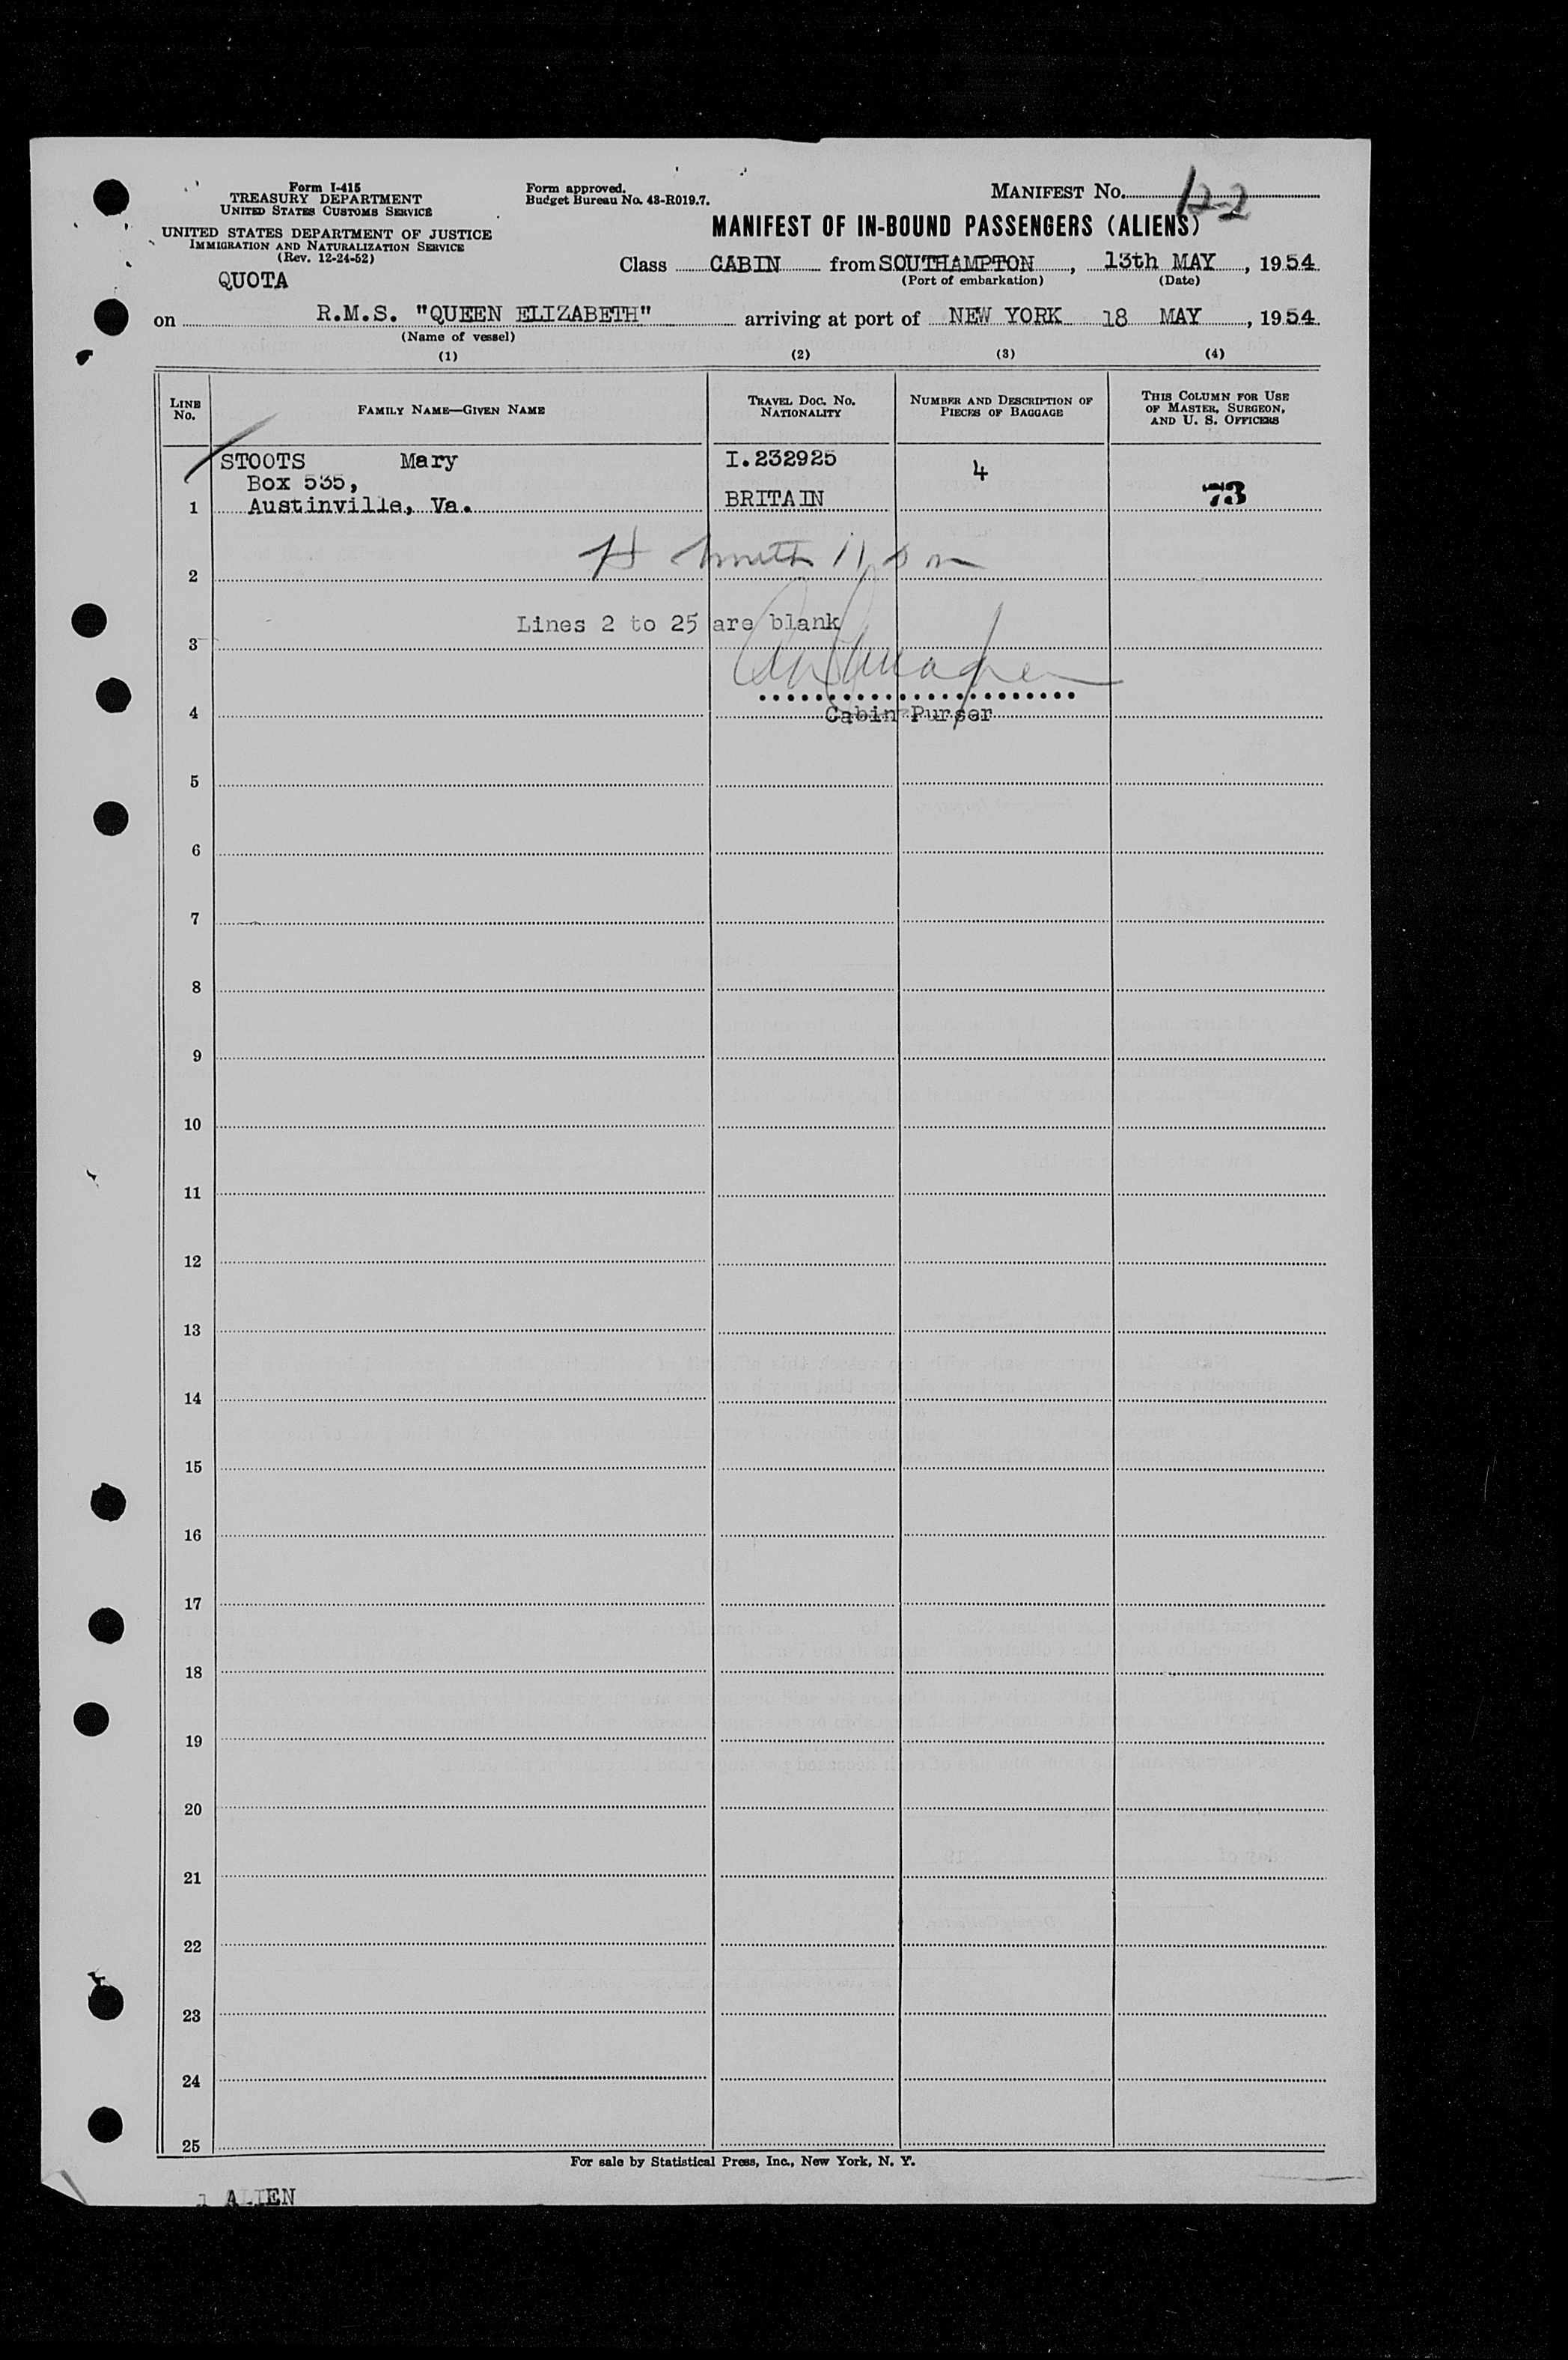 Form I-415
TREASURY DEPARTMENT
UNITED STATES CUSTOMS SERVICE
UNITED STATES DEPARTMENT OF JUSTICE
IMMIGRATION AND NATURALIZATION SERVICE
(Rev. 12-24-52)
QUOTA
Form approved.
Budget Bureau No. 43-R019.7.
MANIFEST NO. 122
MANIFEST OF IN-BOUND PASSENGERS (ALIENS)
Class CABIN from SOUTHAMPTON, 13th MAY, 1954
(Port of embarkation) (Date)
on R.M.S. "QUEEN ELIZABETH" arriving at port of NEW YORK 18 MAY, 1954
(Name of vessel)
(1) (2) (3) (4)
LINE NO. FAMILY NAME—GIVEN NAME TRAVEL DOC. NO. NATIONALITY NUMBER AND DESCRIPTION OF PIECES OF BAGGAGE THIS COLUMN FOR USE OF MASTER, SURGEON, AND U. S. OFFICERS
STOOTS Mary I.232925 4
Box 535,
1 Austinville, Va. BRITAIN 73
2
Lines 2 to 25 are blank
3
4 Cabin Purser
5
6
7
8
9
10
11
12
13
14
15
16
17
18
19
20
21
22
23
24
25
For sale by Statistical Press, Inc., New York, N. Y.
1 ALIEN